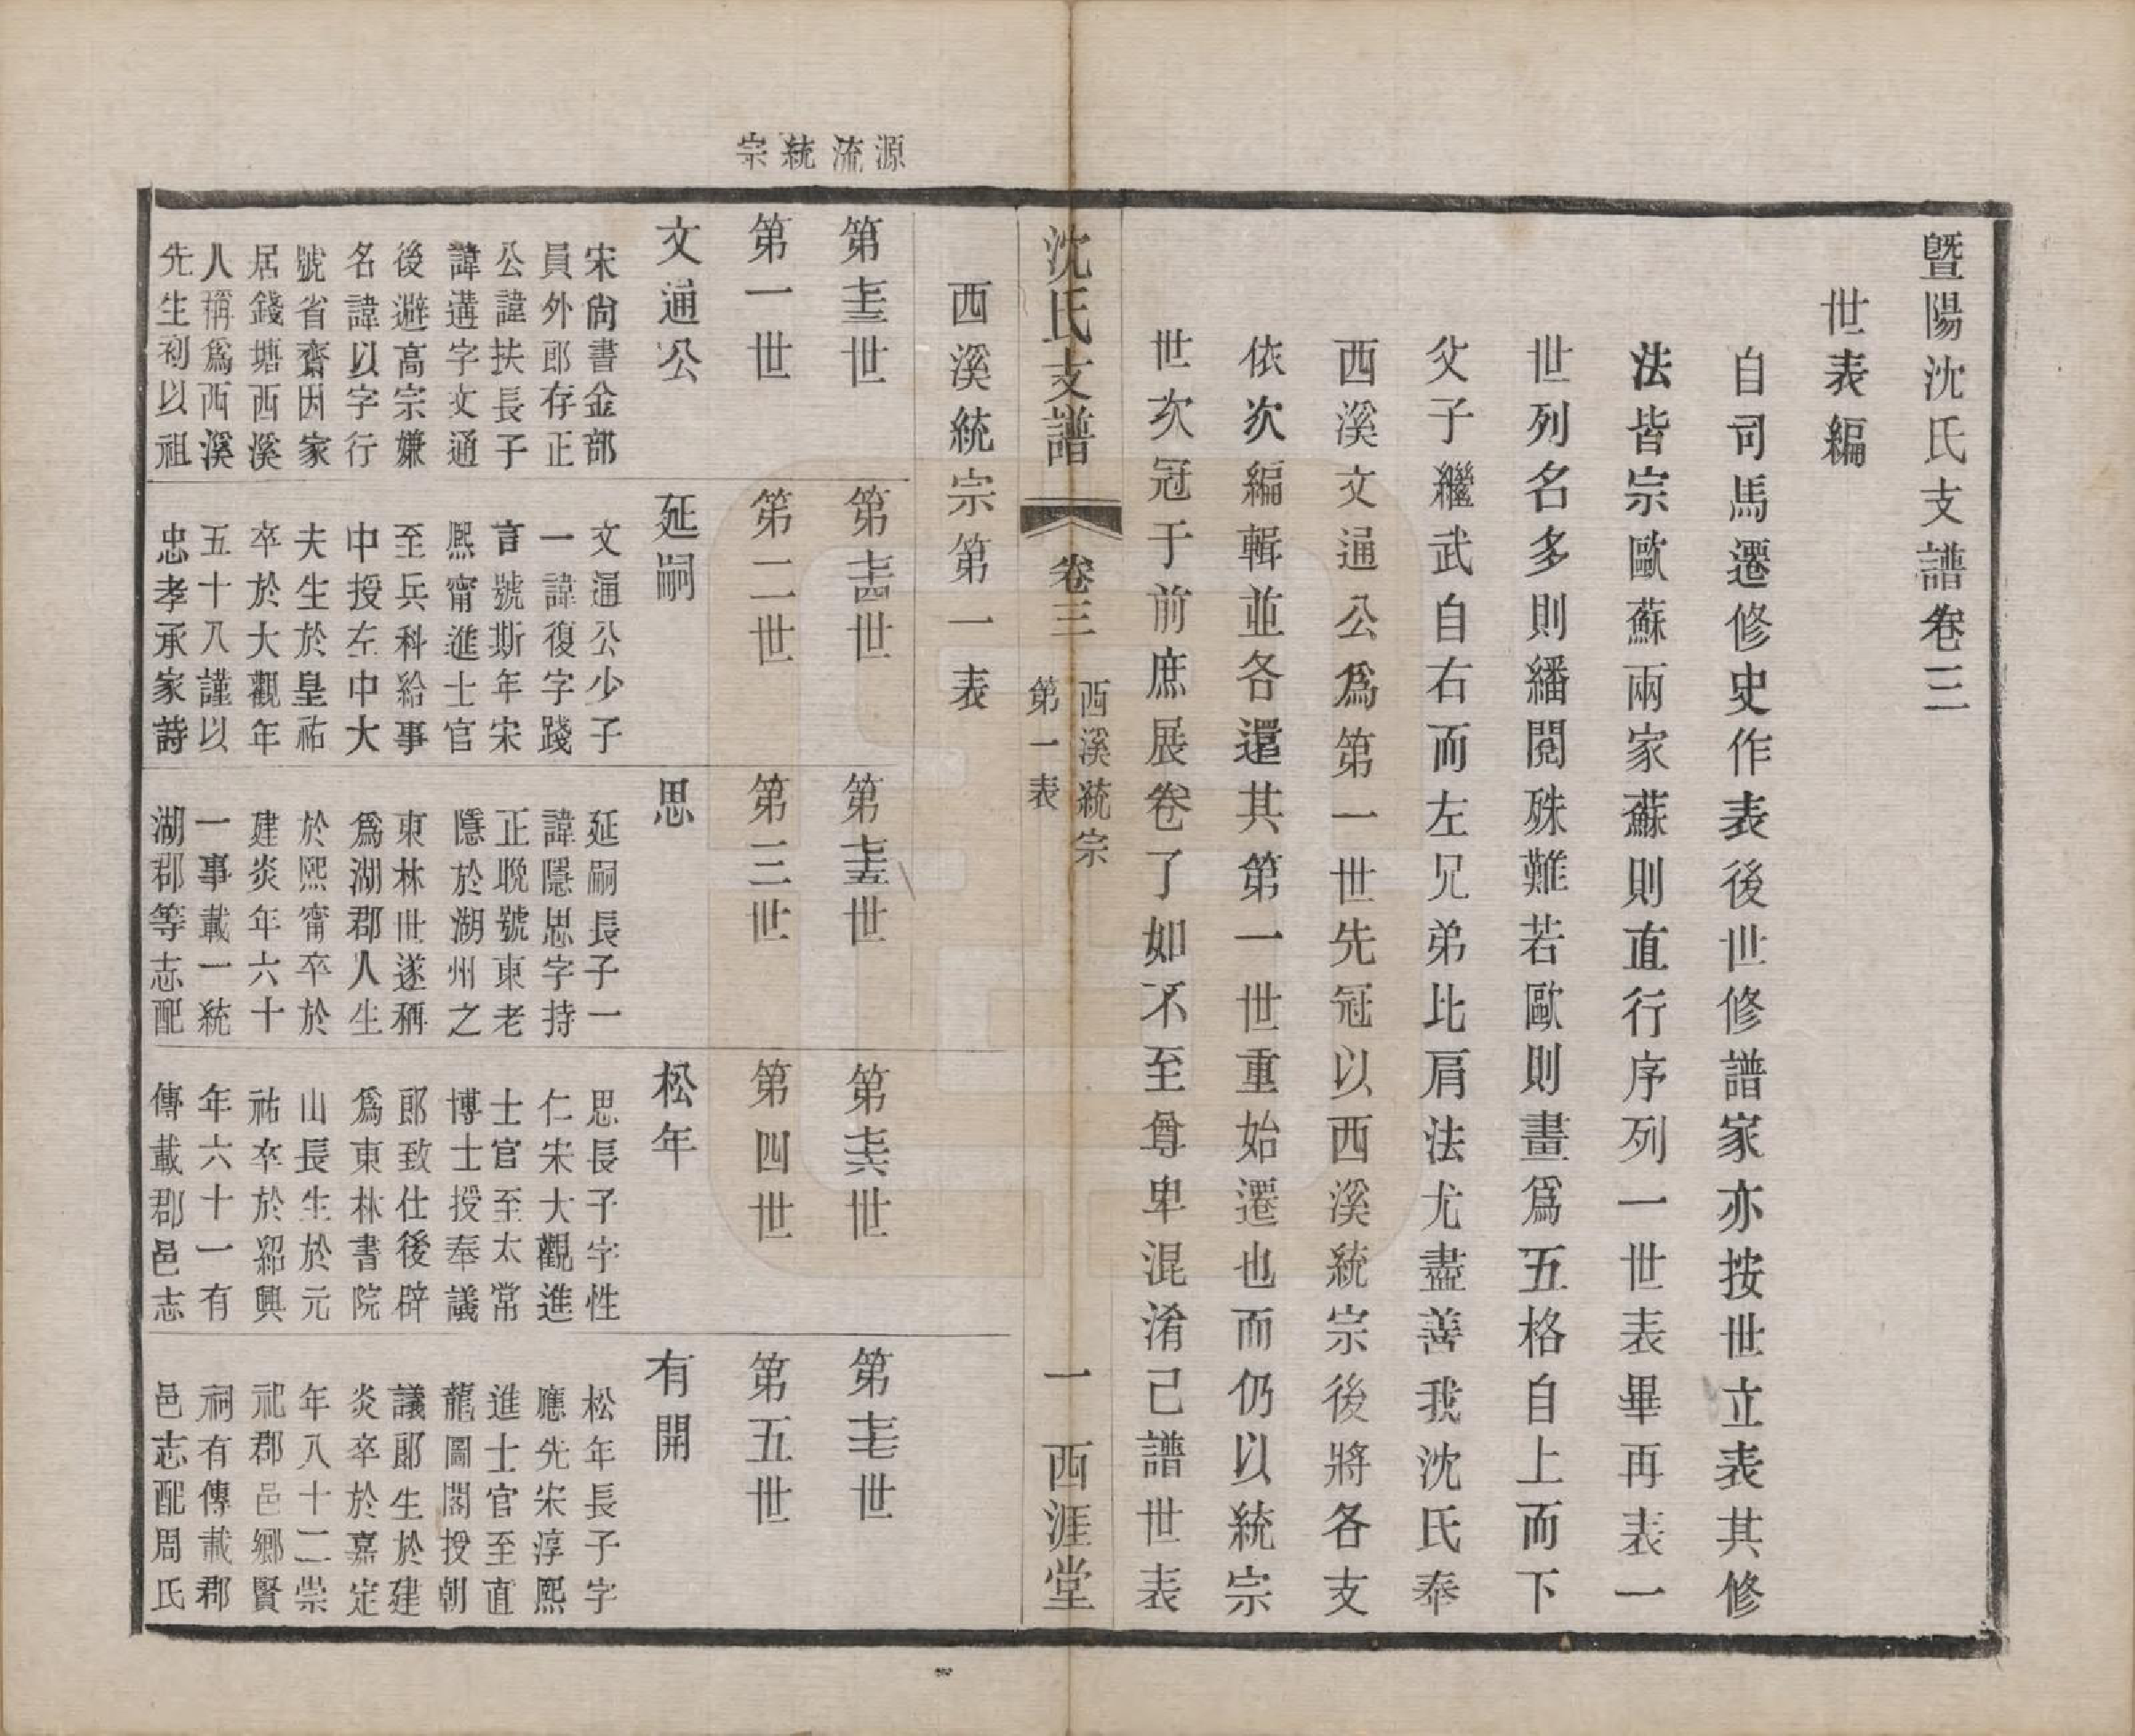 暨陽沈氏支譜卷三
世表編
自司馬遷修史作表後世修譜家亦按世立表其修
法皆宗歐蘇兩家蘇則直行序列一世表畢再表一
世列名多則繙閱殊難若歐則畫爲五格自上而下
父子繼武自右而左兄弟比肩法尤盡善我沈氏奉
西溪文通公爲第一世先冠以西溪統宗後將各支
依次編輯並各還其第一世重始遷也而仍以統宗
世次冠于前庶展卷了如不至尊卑混淆己譜世表
沈氏支譜
卷三
西溪統宗
第一表
一
西涯堂
西溪統宗第一表
源流統宗
第十三世
第一世
文通公
宋尙書金部
員外郎存正
公諱扶長子
諱遘字文通
後避高宗嫌
名諱以字行
號省齋因家
居錢塘西溪
人稱爲西溪
先生初以祖
第十四世
第二世
延嗣
文通公少子
一諱復字踐
言號斯年宋
熙甯進士官
至兵科給事
中授左中大
夫生於皇祐
卒於大觀年
五十八謹以
忠孝承家詩
第十五世
第三世
思
延嗣長子一
諱隱思字持
正晩號東老
隱於湖州之
東林世遂稱
爲湖郡人生
於熙甯卒於
建炎年六十
一事載一統
湖郡等志配
第十六世
第四世
松年
思長子字性
仁宋大觀進
士官至太常
博士授奉議
郎致仕後辟
爲東林書院
山長生於元
祐卒於紹興
年六十一有
傳載郡邑志
第十七世
第五世
有開
松年長子字
應先宋淳熙
進士官至直
龍圖閣授朝
議郎生於建
炎卒於嘉定
年八十二崇
祀郡邑鄉賢
祠有傳載郡
邑志配周氏